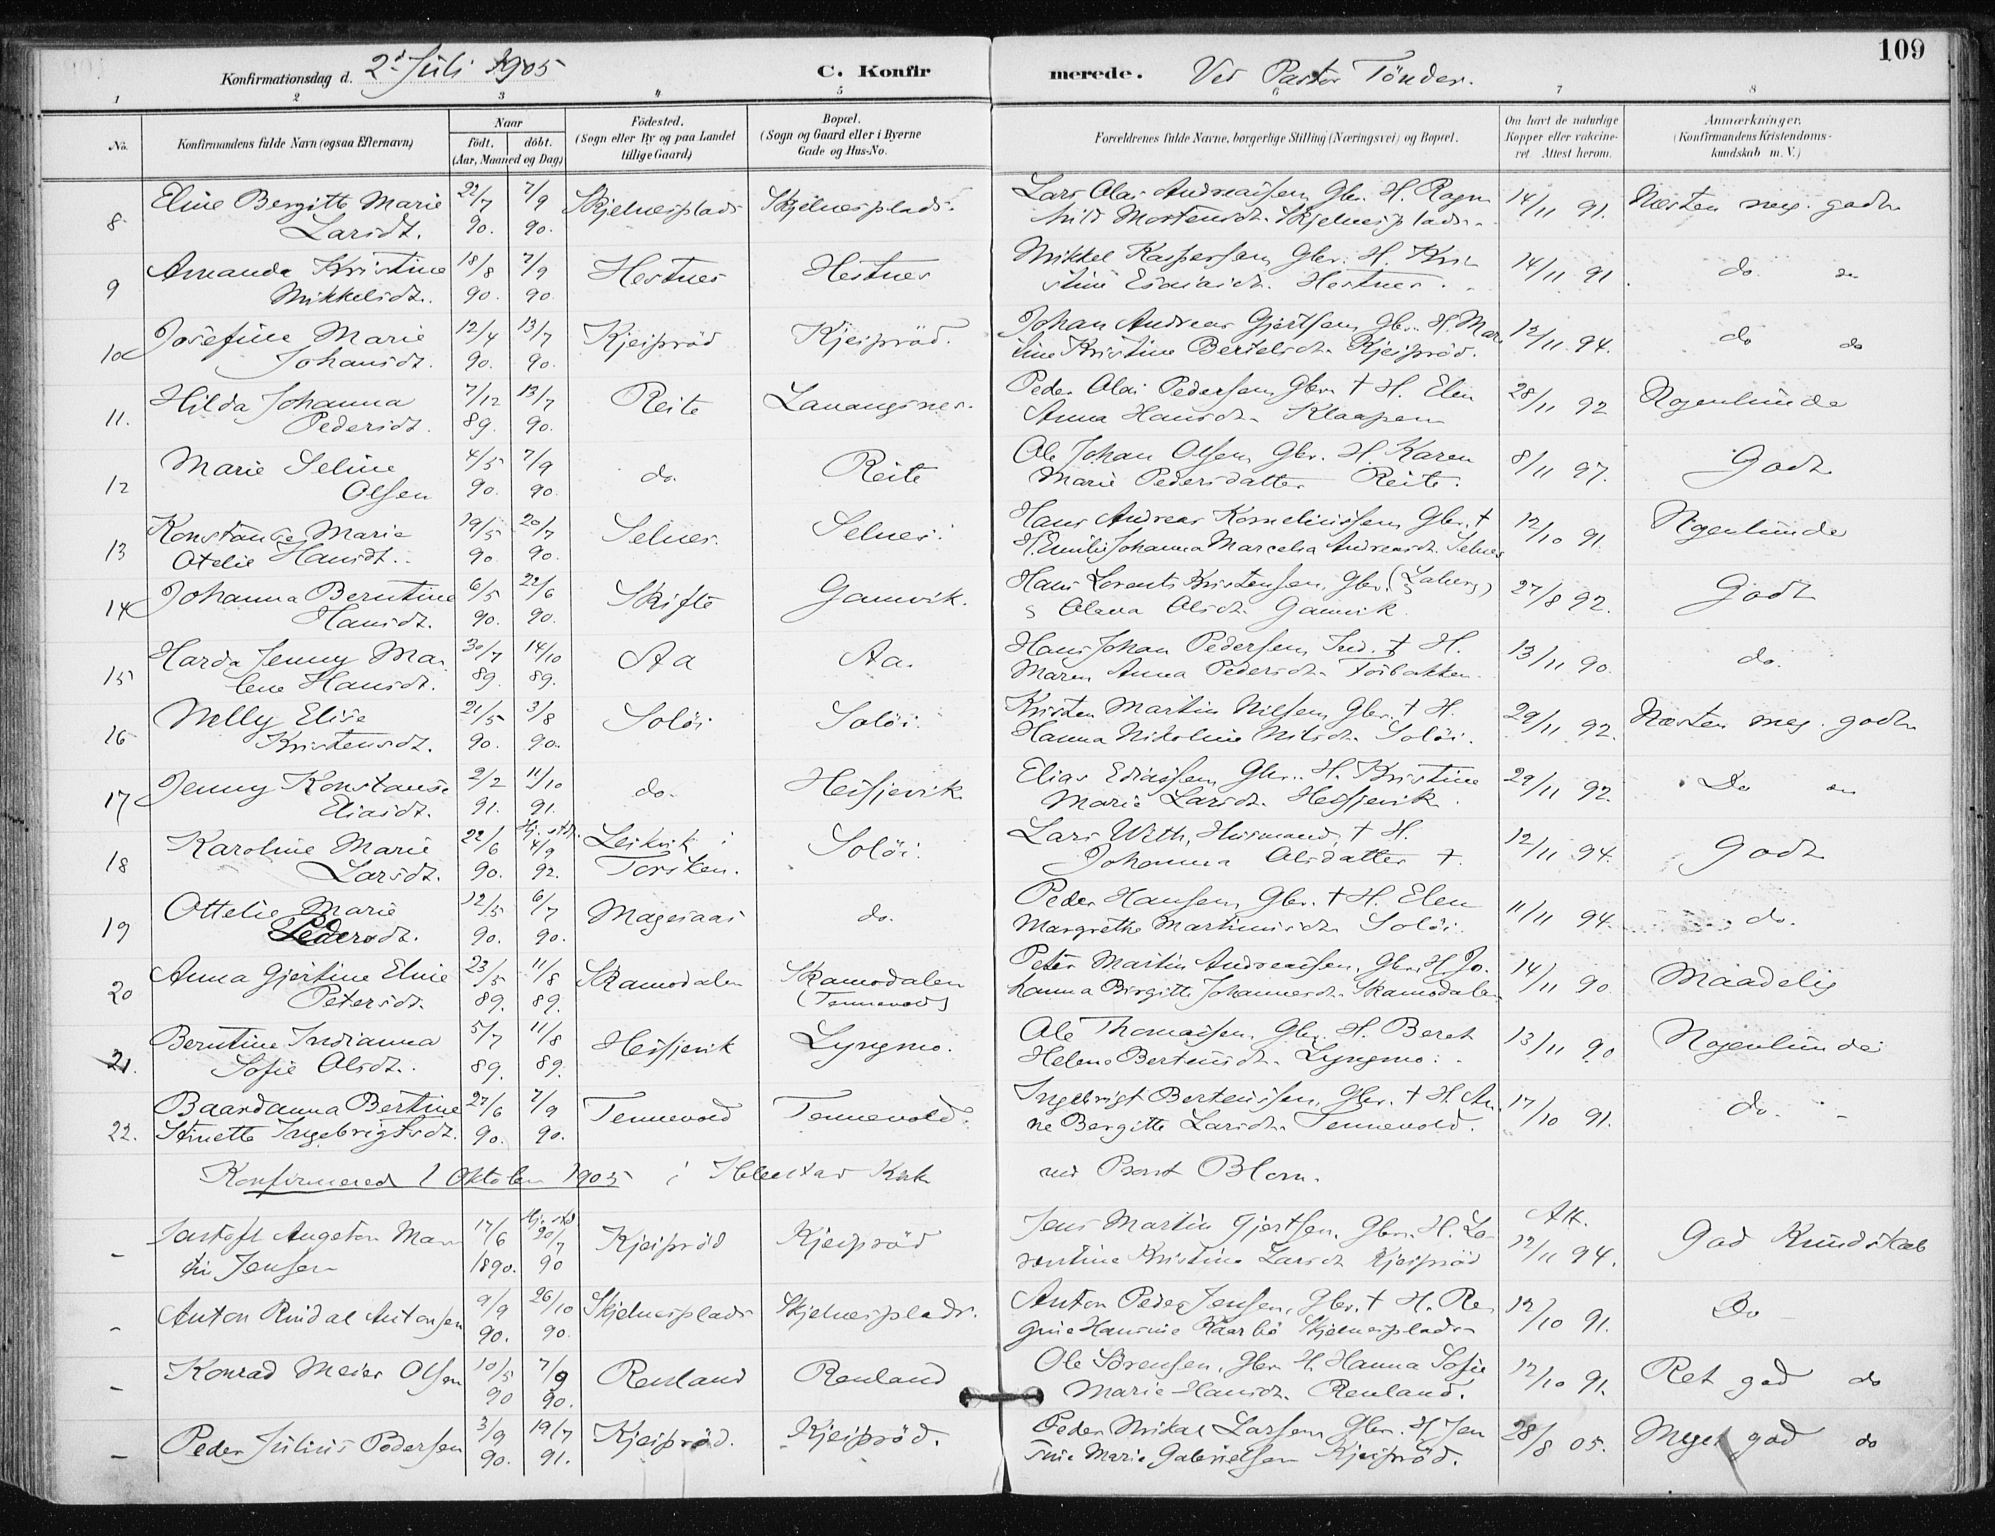 109
Konfirmationsdag d. 2d Juli 1905 C. Konfirmerede. Ved Pastor Tönder.
1 2 3 4 5 6 7 8
No. Konfirmandens fulde Navn (ogsaa Efternavn) Naar født. døbt. (Aar, Maaned og Dag) Fødested. (Sogn eller By og paa Landet tillige Gaard) Bopæl. (Sogn og Gaard eller i Byerne Gade og Hus-No. Forældrenes fulde Navne, borgerlige Stilling (Næringsvei) og Bopæl. Om havt de naturlige Kopper eller vaccineret Attest herom. Anmærkninger. (Konfirmandens Kristendomskundskab m. V.)
8 Eline Bergitte Marie 22/7 7/9 Skjelnesplads Skjelnesplads. Lars Olai Andreassen, Gbr. H. Ragn 14/11 91. Næsten meg. godt
Larsdt. 90. 90. hild Mortensdt. Skjelnesplads.
9 Amanda Kristine 18/8 7/9 Hestnes Hestnes Mikkel Kaspersen, Gbr. H. Kri 14/11 91. do do
Mikkelsdt. 90. 90. stine Esaiasdt. Hestnes.
10 Josefine Marie 12/4 13/7 Kjeiprød Kjeiprød. Johan Andreas Gjertsen, Gbr. H. Mar 12/11 94. do do
Johansdt. 90. 90. tine Kristine Bertelsdt. Kjeiprød.
11. Hilda Johanna 7/12 13/7 Reite Lavangsnes. Peder Olai Pedersen, Gbr. † H. Elen 28/11 92 Nogenlunde
Pedersdt. 89. 90. Anna Hansdt.
12 Marie Seline 4/5 7/9 do. Reite Ole Johan Olsen, Gbr. H. Karen 8/11 97. Godt
Olsen 90. 90. Marie Pedersdatter Reite.
13 Konstanse Marie 19/5 20/7 Selnes. Selnes. Hans Andreas Korneliussen, Gbr. † 12/10 91. Nogenlunde
Otelie Hansdt. 90 90. H. Emilie Johanna Marcelia Andreasdt. Selnes
14 Johanna Berntine 6/5 22/6 Skifte Gamvik. Hans Lorents Kristensen, Gbr. 27/8 92. Godt
Hansdt. 90. 90. Olava Olsdt. Gamvik
15 Harda Jenny Ma- 30/7 14/10 Aa Aa. Hans Johan Pedersen, Ind. † H. 13/11 90. do.
lene Hansdt. 89. 89. Maren Anna Pedersdt. Fosbakken.
16 Nelly Elise 21/5 3/8 Soløi Soløi. Kristen Martin Nilsen, Gbr. † H. 29/11 92. Næsten meg. godt
Kristensdt. 90. 90. Hanna Nikoline Nilsdt. Soløi.
17 Jenny Konstanse 2/2 11/10 do. Hesjevik Elias Ediassen, Gbr. H. Kristine 29/11 92. Do do
Eliasdt. 91. 91. Marie Larsdt. Hesjevik.
18 Karoline Marie 22/6 Hj. døbt. 4/9 Leikvik i Soløi. Lars With, Husmand, † H. 12/11 94. Godt
Larsdt. 90. 92. Torsken. Johanna Olsdatter †.
19 Ottelie Marie 12/5 6/7 Magesaas do. Peder Hansen, Gbr. † H. Elen 11/11 94. do.
Pedersdt. 90. 90. Margrethe Martinusdt. Soløi.
20 Anna Gjertine Elvie 23/5 11/8 Skamodalen Skamodalen Peter Martin Andreassen, Gbr. H. Jo. 14/11 90. Maadelig
Petersdt. 89. 89. (Tennevold) hanna Birgitte Johannesdt. Skamodalen
21. Berntine Indianna 5/7 11/8 Hesjevik Lyngmo. Ole Thomassen, Gbr. H. Beret 13/11 90 Nogenlunde
Sofie Olsdt. 89. 89. Helene Berteusdt. Lyngmo.
22. Baardanna Bertine 27/6 7/9 Tennevold Tennevold. Ingebrigt Berteussen, Gbr. † H. An 17/10 91. do.
Stinette Ingebrigtsdt. 90. 90. ne Bergitte Larsdt. Tennevold.
Konfirmerede 1 Oktober 1905 i Ibbestad Kirke ved Provst Blom.
- Jastoft Angeton Mar 17/6 Hj. død 20/7 Kjeiprød Kjeiprød Jens Martin Gjertsen, Gbr. H. La- Att. 12/11 94. God Kundskab
tin Jensen 1890. 90 rentine Kristine Larsdt. Kjeiprød
- Anton Rindal Antonsen 9/9 26/10 Skjelnesplads Skjelnesplads. Anton Peder Jensen, Gbr. † H. Re 12/10 91. Do
90. 90. gine Hansine Kaarbø Skjelnesplads
- Konrad Meier Olsen 10/5 7/9 Rensland Renland Ole Sörensen, Gbr. H. Hanna Sofie 12/10 91. Ret god do
90 90. Marie Hansdt. Renland.
- Peder Julius Pedersen 3/9 19/7 Kjeiprød. Kjeiprød. Peder Mikal Larsen, Gbr. H. Jen 28/8 05. Meget god do
90. 91. sine Marie Gabrielsen Kjeiprød.